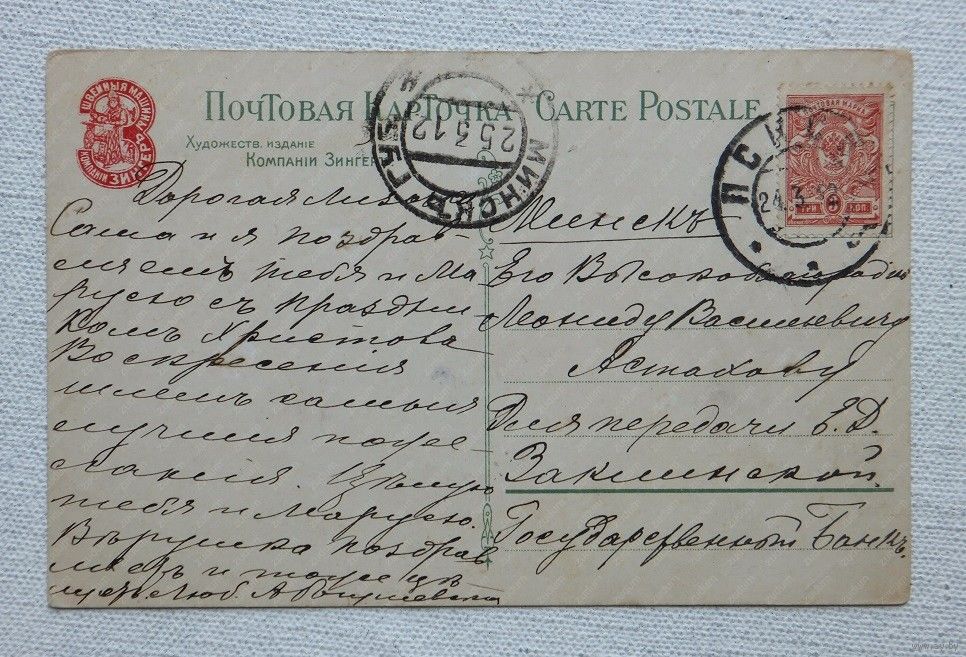 Почтовая Карточка
Carte Postale
Художеств. издание
Компаніи Зингеръ
ШВЕЙНЫЯ МАШИНЫ
КОМПАНІИ ЗИНГЕРЪ
МИНСКЪ ГУБ.
25.3.12
ПСКОВ
24.3.12
ПОЧТОВАЯ МАРКА
ТРИ 3 КОП.
Дорогая Лиза
Саша и я поздрав-
ляемъ тебя и Ма
русю съ праздни
комъ Христова
Воскресенія
шлемъ самыя
лучшія поже
ланія. Цѣлую
тебя и Марусю.
Вѣрушка поздрав
ляетъ и тоже цѣ
Люб. А.
Минскъ
Его Высокоблагородію
Леониду Васильевичу
Астахову
Для передачи Е. Д.
Заклинской.
Государственный Банкъ.
www.ay.by